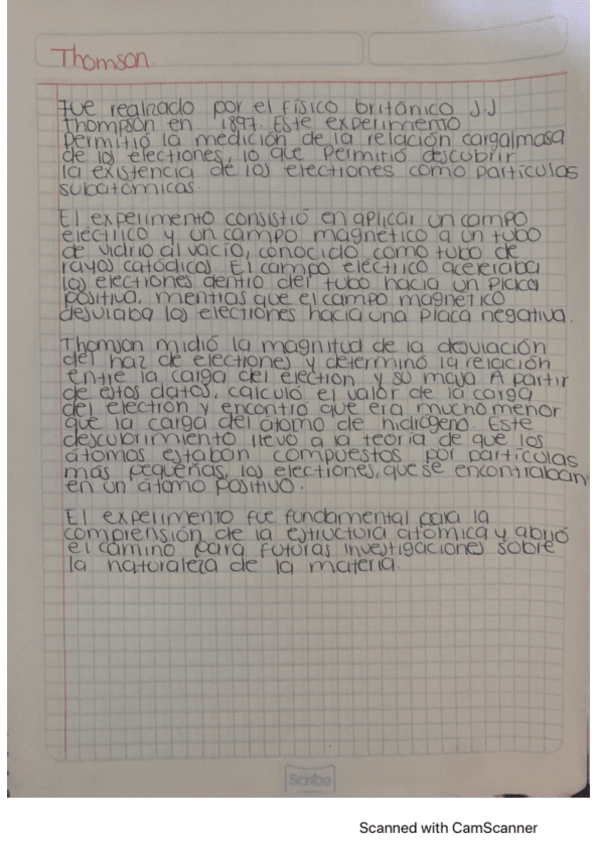 Thomson.
Fue realizado por el físico británico J.J
Thompson en 1897. Este experimento
permitió la medición de la relación carga/masa
de los electrones, lo que permitió descubrir
la existencia de los electrones como partículas
subatómicas.
El experimento consistió en aplicar un campo
eléctrico y un campo magnético a un tubo
de vidrio al vacío, conocido como tubo de
rayos catódicos. El campo eléctrico aceleraba
los electrones dentro del tubo hacia un placa
positiva, mentias que el campo magnético
desviaba los electrones hacia una placa negativa.
Thomson midió la magnitud de la desviación
del haz de electrones y determinó la relación
entre la carga del electrón y su masa A partir
de estos datos, calculó el valor de la carga
del electrón y encontró que era mucho menor
que la carga del átomo de hidrógeno. Este
descubrimiento llevó a la teoría de que los
átomos estaban compuestos por partículas
más pequeñas, los electrones, que se encontraban
en un átomo positivo.
El experimento fue fundamental para la
comprensión de la estructura atómica y abrió
el camino para futuras investigaciones sobre
la naturaleza de la materia.
Scribe
Scanned with CamScanner